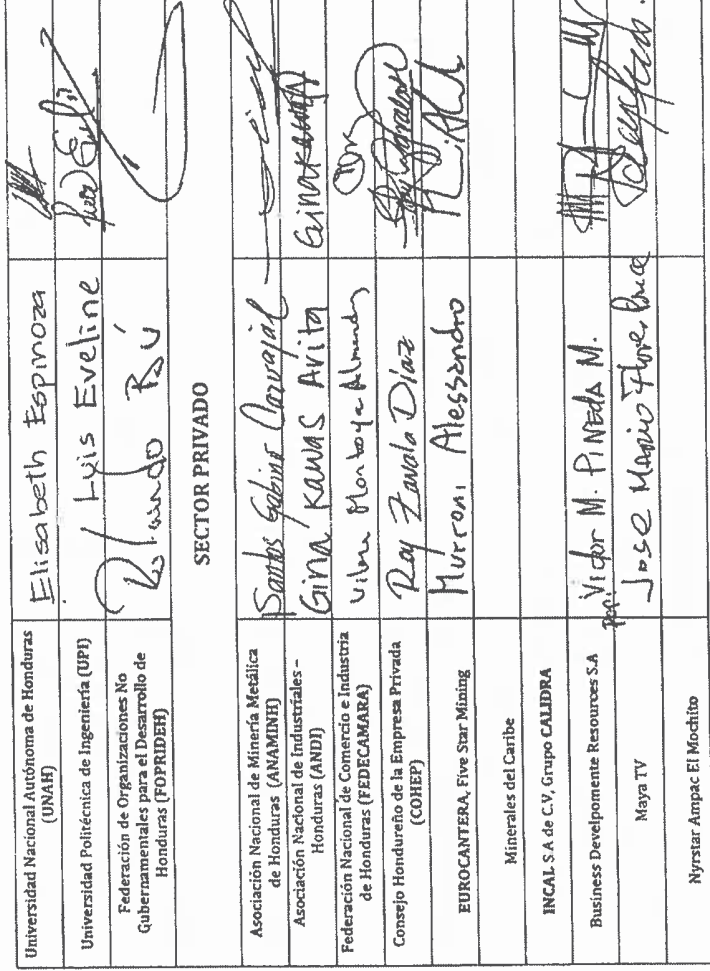 Universidad Nacional Autónoma de Honduras
(UNAH)
Elisabeth Espinoza
Universidad Politécnica de Ingeniería (UPI)
Luis Eveline
Federación de Organizaciones No
Gubernamentales para el Desarrollo de
Honduras (FOPRIDEH)
SECTOR PRIVADO
Asociación Nacional de Minería Metálica
de Honduras (ANAMINH)
Santos Gabino Carvajal
Asociación Nacional de Industriales –
Honduras (ANDI)
Gina Kawas Avita
Gina Kawas
Federación Nacional de Comercio e Industria
de Honduras (FEDECAMARA)
Vilma Montoya Almendez
Consejo Hondureño de la Empresa Privada
(COHEP)
Roy Zavala Díaz
EUROCANTERA, Five Star Mining
Murroni Alessandro
Minerales del Caribe
INCAL S A de C.V, Grupo CALIDRA
Business Develpomente Resources S.A
Por: Victor M. PINEDA M.
Maya TV
Jose Mario Flores Ponce
Nyrstar Ampac El Mochito